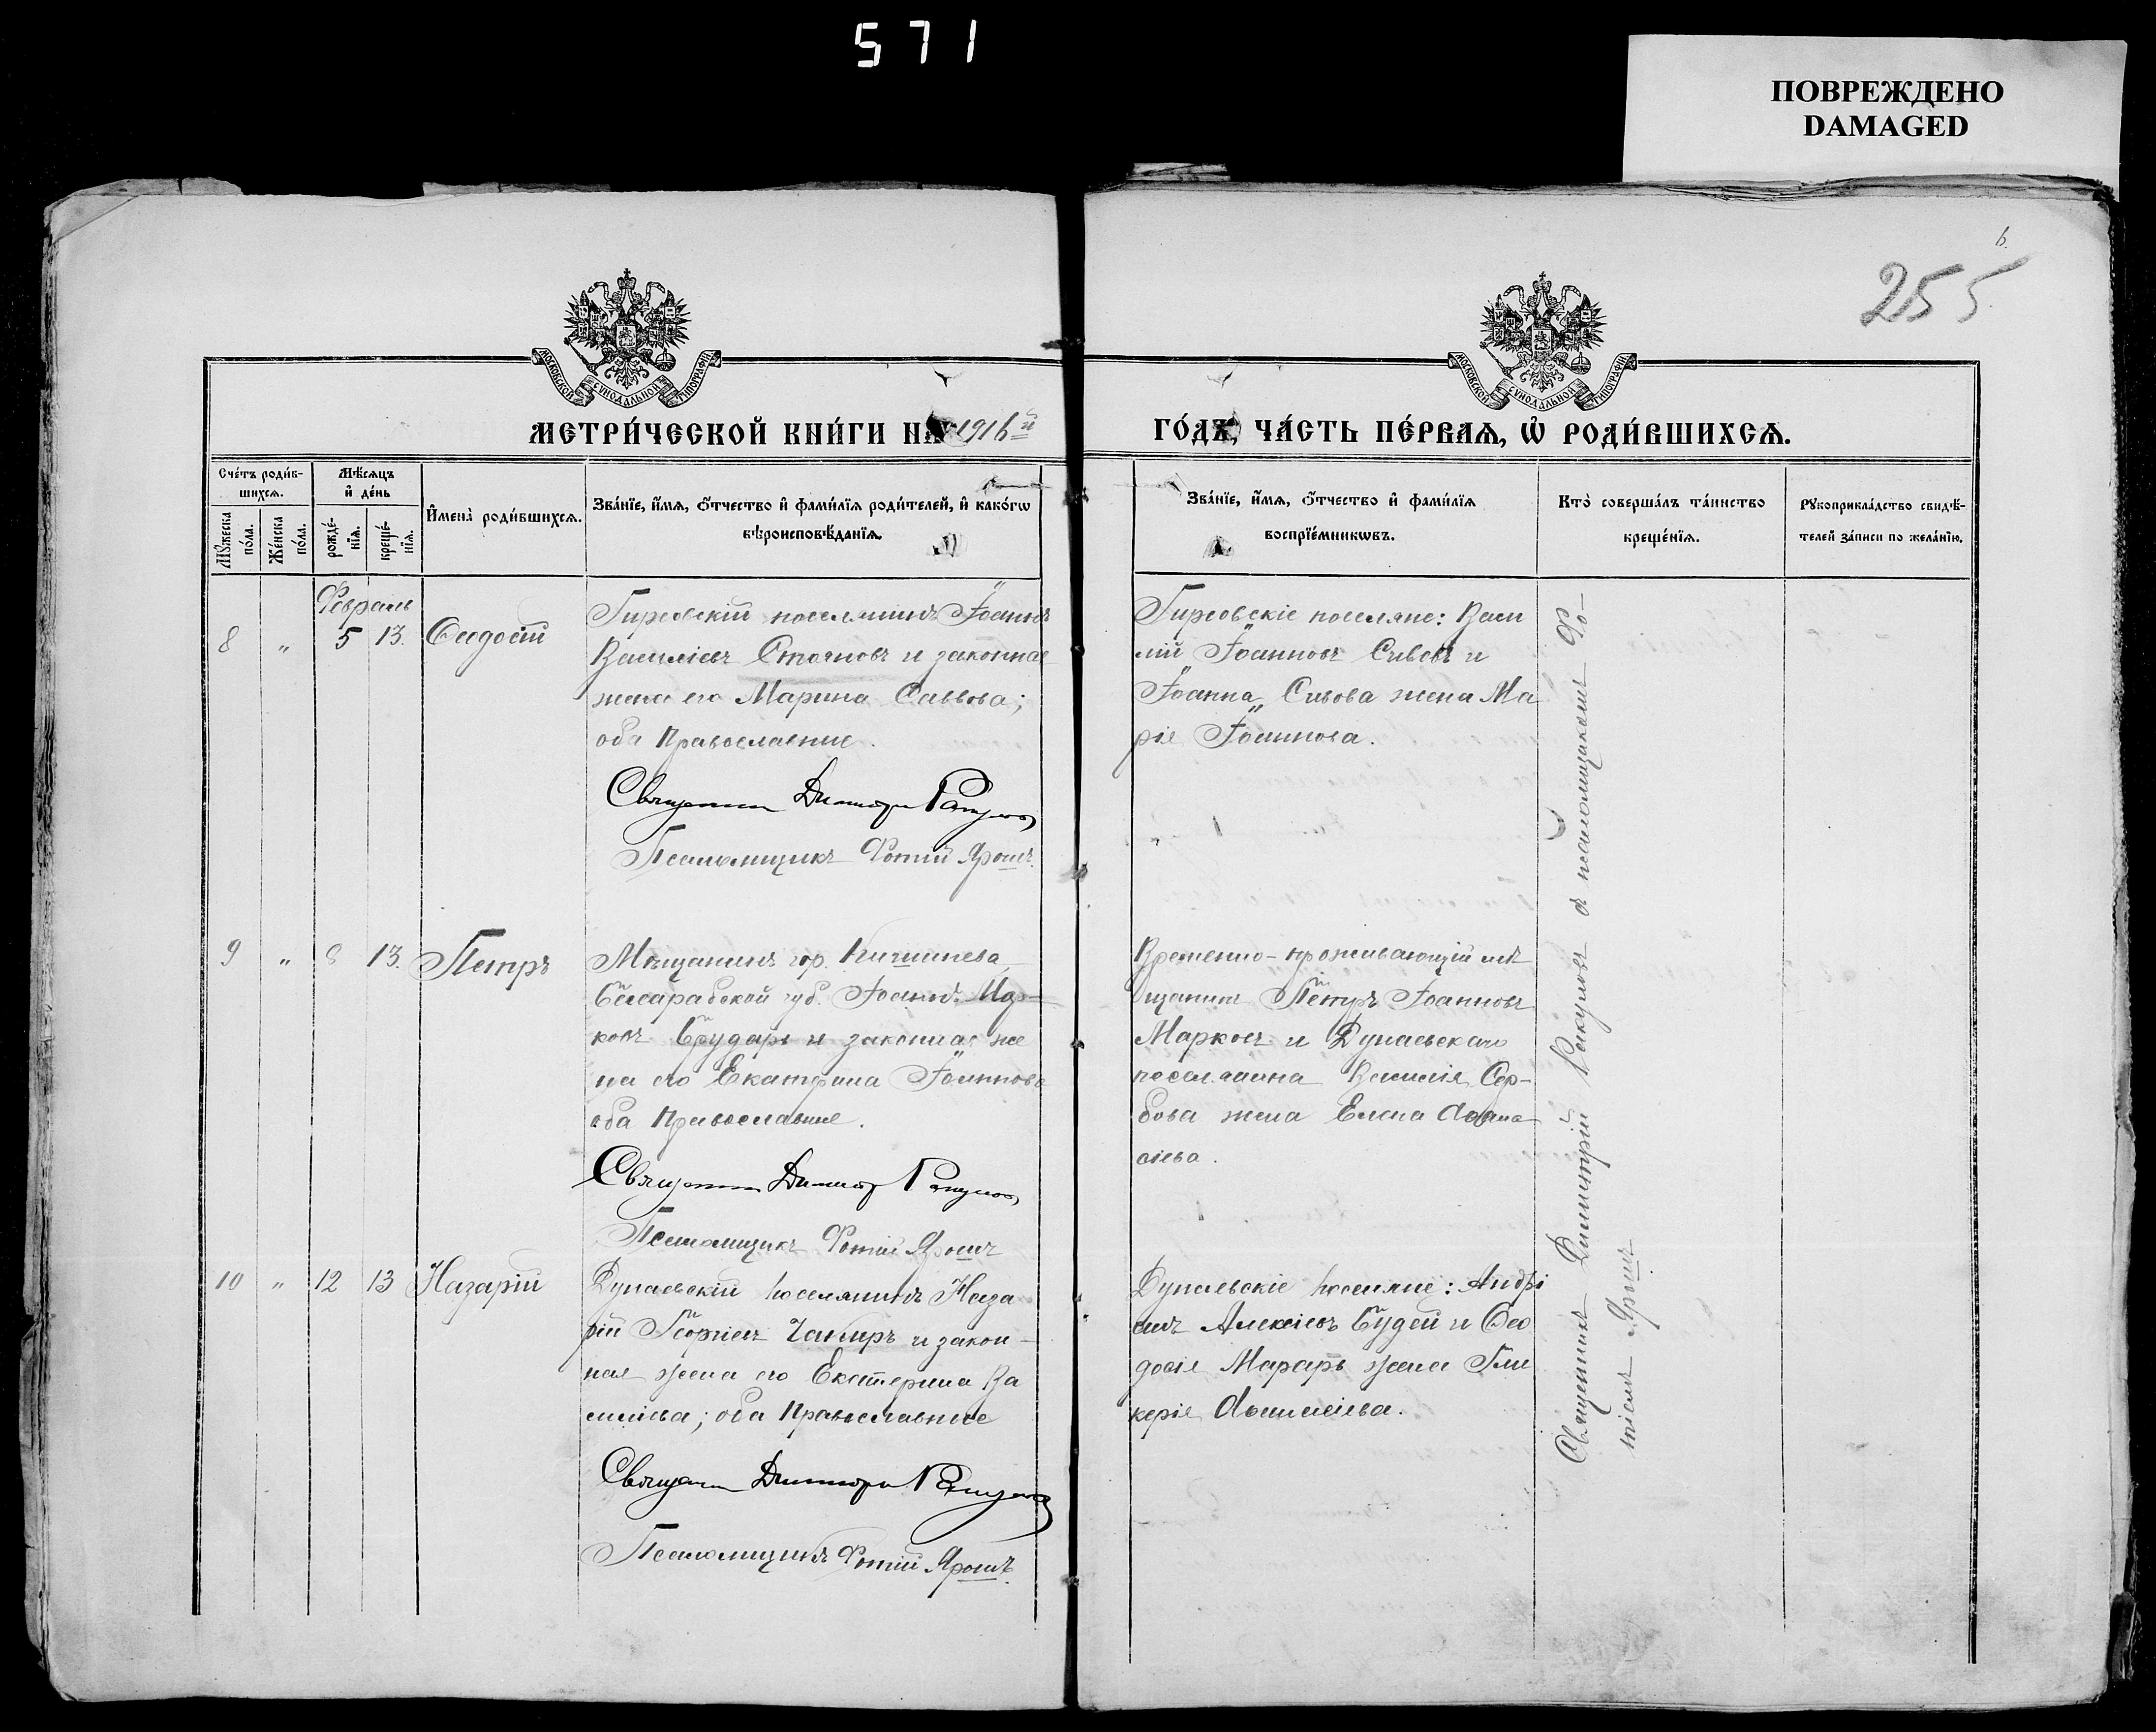 571
ПОВРЕЖДЕНО
DAMAGED
6.
255
МОСКОВСКОЙ СѴНОДАЛЬНОЙ ТИПОГРАФІИ
МОСКОВСКОЙ СѴНОДАЛЬНОЙ ТИПОГРАФІИ
МЕТРИ́ЧЕСКОЙ КНИ́ГИ НА 1916й
ГО́ДЪ, ЧА́СТЬ ПЕ́РВАѦ, Ѡ҆ РОДИ́ВШИХСѦ.
Сче́тъ роди́в-
шихсѧ.
Мꙋ́жеска по́ла.
Же́нска по́ла.
Мѣ́сѧцъ
и҆ де́нь
рожде́-
нїѧ.
креще́-
нїѧ.
И҆мена̀ роди́вшихсѧ.
Зва́нїе, и҆́мѧ, ѻ҆́тчество и҆ фами́лїѧ роди́телей, и҆ како́гѡ
вѣроисповѣ́данїѧ.
Зва́нїе, и҆́мѧ, ѻ҆́тчество и҆ фами́лїѧ
воспрїе́мникѡвъ.
Кто̀ соверша́лъ та́инство
креще́нїѧ.
Рꙋкоприкла́дство свидѣ́-
телей за́писи по жела́нїю.
Февраль
8 " 5 13. Ѳеодосій
Гирсовскій поселянинъ Іоаннъ
Василіевъ Стояновъ и законная
жена его Марина Саввова;
оба Православные.
Священник Димитрий Ракулов
Псаломщикъ Фотій Ярошъ.
Гирсовскіе поселяне: Васи
лій Іоанновъ Сивовъ и
Іоанна Сивова жена Ма
рія Іоаннова.
9 " 8 13. Петръ
Мѣщанинъ гор. Кишинева
Бессарабской губ. Іоаннъ Мар-
ковъ Брударь и законная же
на его Екатерина Іоаннова
оба Православные.
Священник Димитр Ракулов
Псаломщикъ Фотій Ярошъ
Временно-проживающій мѣ
щанинъ Петръ Іоанновъ
Марковъ и Дунаевскаго
поселянина Василія Сер-
бова жена Елена Аѳана
сіева.
10 " 12 13 Назарій
Дунаевскій поселянинъ Наза
рій Георгіевъ Чакиръ и закон-
ная жена его Екатерина Ва
силіева; оба Православные
Священник Димитрий Ракулов
Псаломщикъ Фотій Ярошъ.
Дунаевскіе поселяне: Андрі
анъ Алексіевъ Будей и Ѳео
досія Мараръ жена Гли
керія Аѳанасіева.
Священникъ Димитрій Ракуловъ съ псаломщикомъ Фо-
тіемъ Ярошъ